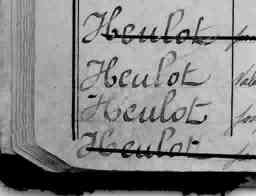 Heulot
Heulot
Heulot
Heulot